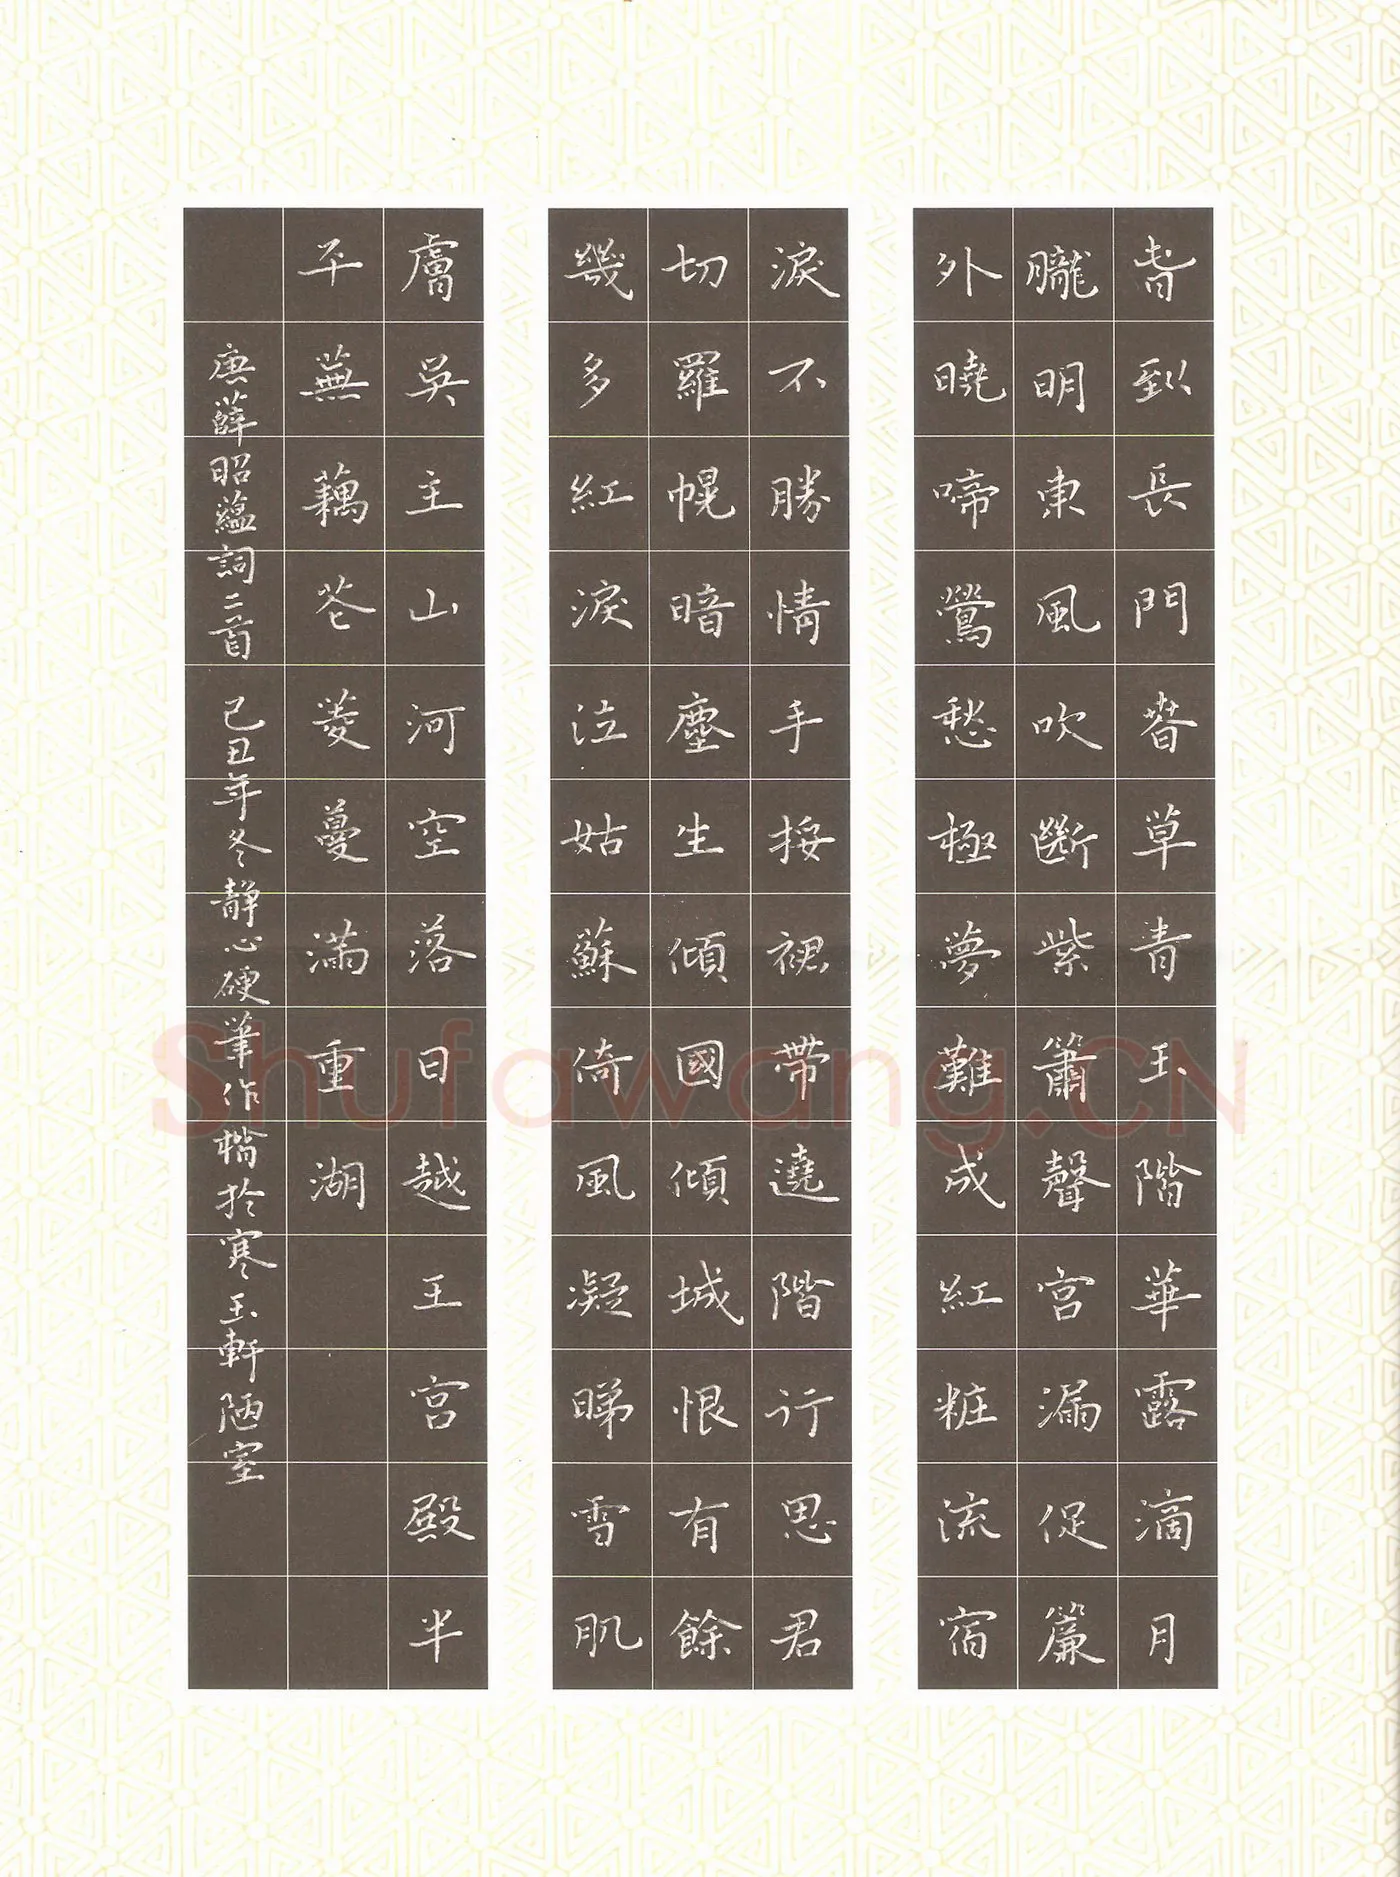 春到長門春草青玉階華露滴月
朧明東風吹斷紫簫聲宮漏促簾
外曉啼鶯愁極夢難成紅粧流宿
淚不勝情手挼裙帶遶階行思君
切羅幌暗塵生傾國傾城恨有餘
幾多紅淚泣姑蘇倚風凝睇雪肌
膚吳主山河空落日越王宮殿半
平蕪藕花菱蔓滿重湖
唐薛昭蘊詞二首 己丑年冬静心硬筆作檎於寒玉軒陋室
Shufawang.CN